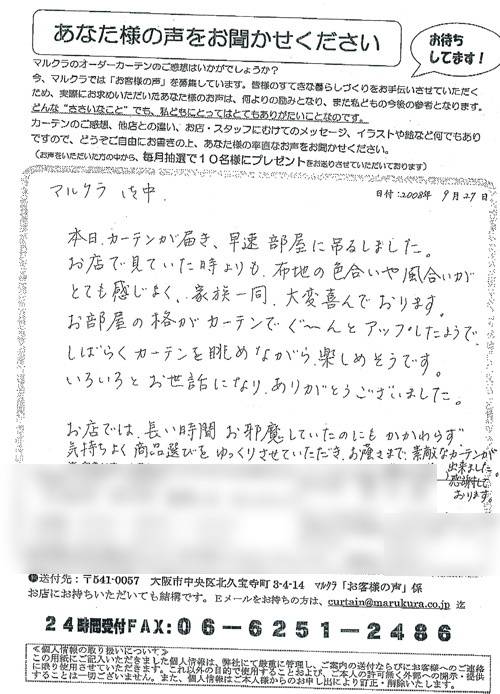 あなた様の声をお聞かせください
お待ち
してます!
マルクラのオーダーカーテンのご感想はいかがでしょうか?
今、マルクラでは「お客様の声」を募集しています。皆様のすてきな暮らしづくりをお手伝いさせていただく
ため、実際にお求めいただいたあなた様のお声は、何よりの励みとなり、また私どもの今後の参考となります。
どんな“ささいなこと”でも、私どもにとってはとてもありがたいことなのです。
カーテンのご感想、他店との違い、お店・スタッフにむけてのメッセージ、イラストや絵など何でもあり
ですので、どうぞご自由にお書きの上、あなた様の率直なお声をお聞かせください。
(お声をいただいた方の中から、毎月抽選で10名様にプレゼントをお送りさせていただいております)
マルクラ 御中.
日付:2008年 9月27日
本日、カーテンが届き、早速 部屋に吊るしました。
お店で見ていた時よりも、布地の色合いや風合いが
とても感じよく、家族一同、大変喜んでおります。
お部屋の格がカーテンでぐ〜んとアップしたようで、
しばらくカーテンを眺めながら、楽しめそうです。
いろいろと お世話になり、ありがとうございました。
お店では、長い時間 お邪魔していたのにもかかわらず
気持ちよく商品選びをゆっくりさせていただき、お陰さまで素敵なカーテンが
出来ました。
感謝して
おります。
送付先:〒541-0057 大阪市中央区北久宝寺町3-4-14 マルクラ「お客様の声」係
お店にお持ちいただいても結構です。Eメールをお持ちの方は、curtain@marukura.co.jp 迄
24時間受付FAX:06-6251-2486
≪個人情報の取り扱いについて≫
この用紙にご記入いただきました個人情報は、弊社にて厳重に管理し、ご案内の送付ならびにお客様へのご連絡
に限り使用させていただきます。これ以外の目的で使用することおよび、ご本人の許可無く外部への開示・提供
することは一切ございません。また、個人情報はご本人様からのお申し出により訂正・削除いたします。